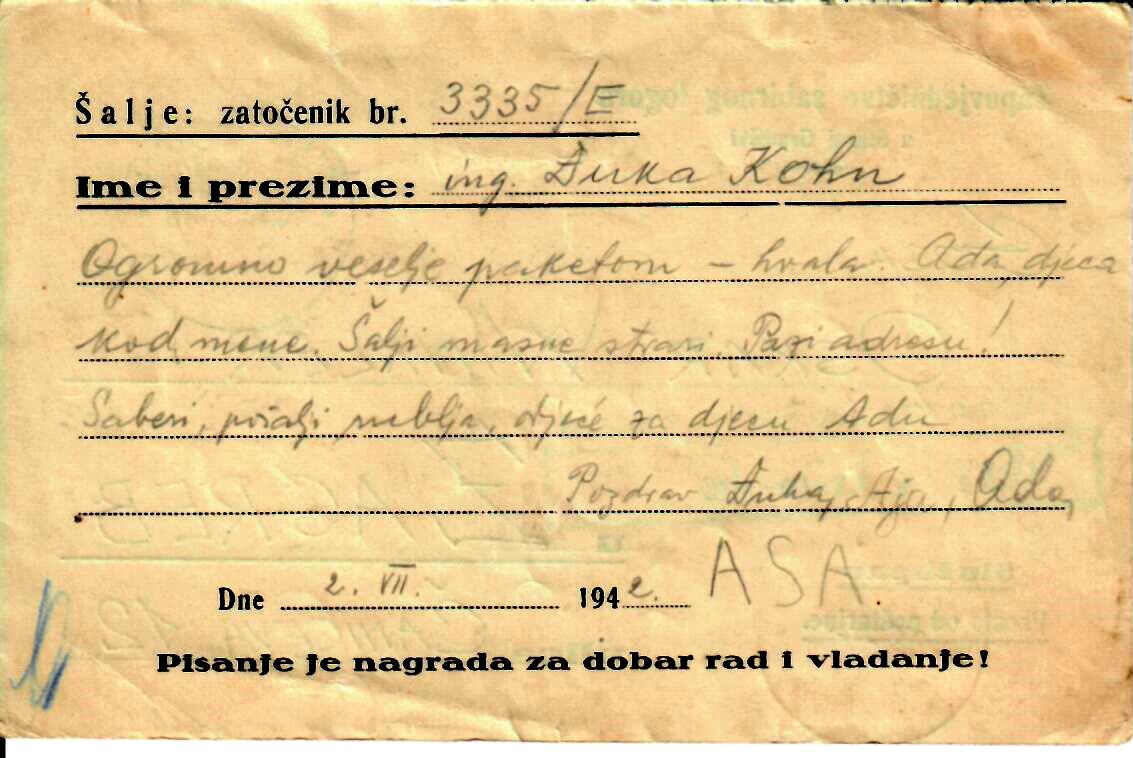 Šalje: zatočenik br. 3335/E
Ime i prezime: ing. Đuka Kohn
Ogromno veselje paketom – hvala. Ada, djeca
kod mene. Šalji masne stvari. Pazi adresu!
Saberi, pošalji rublja, odjeće za djecu Adu
Pozdrav Đuka, Ada,
ASA
Dne 2. VII. 1942.
Pisanje je nagrada za dobar rad i vladanje!